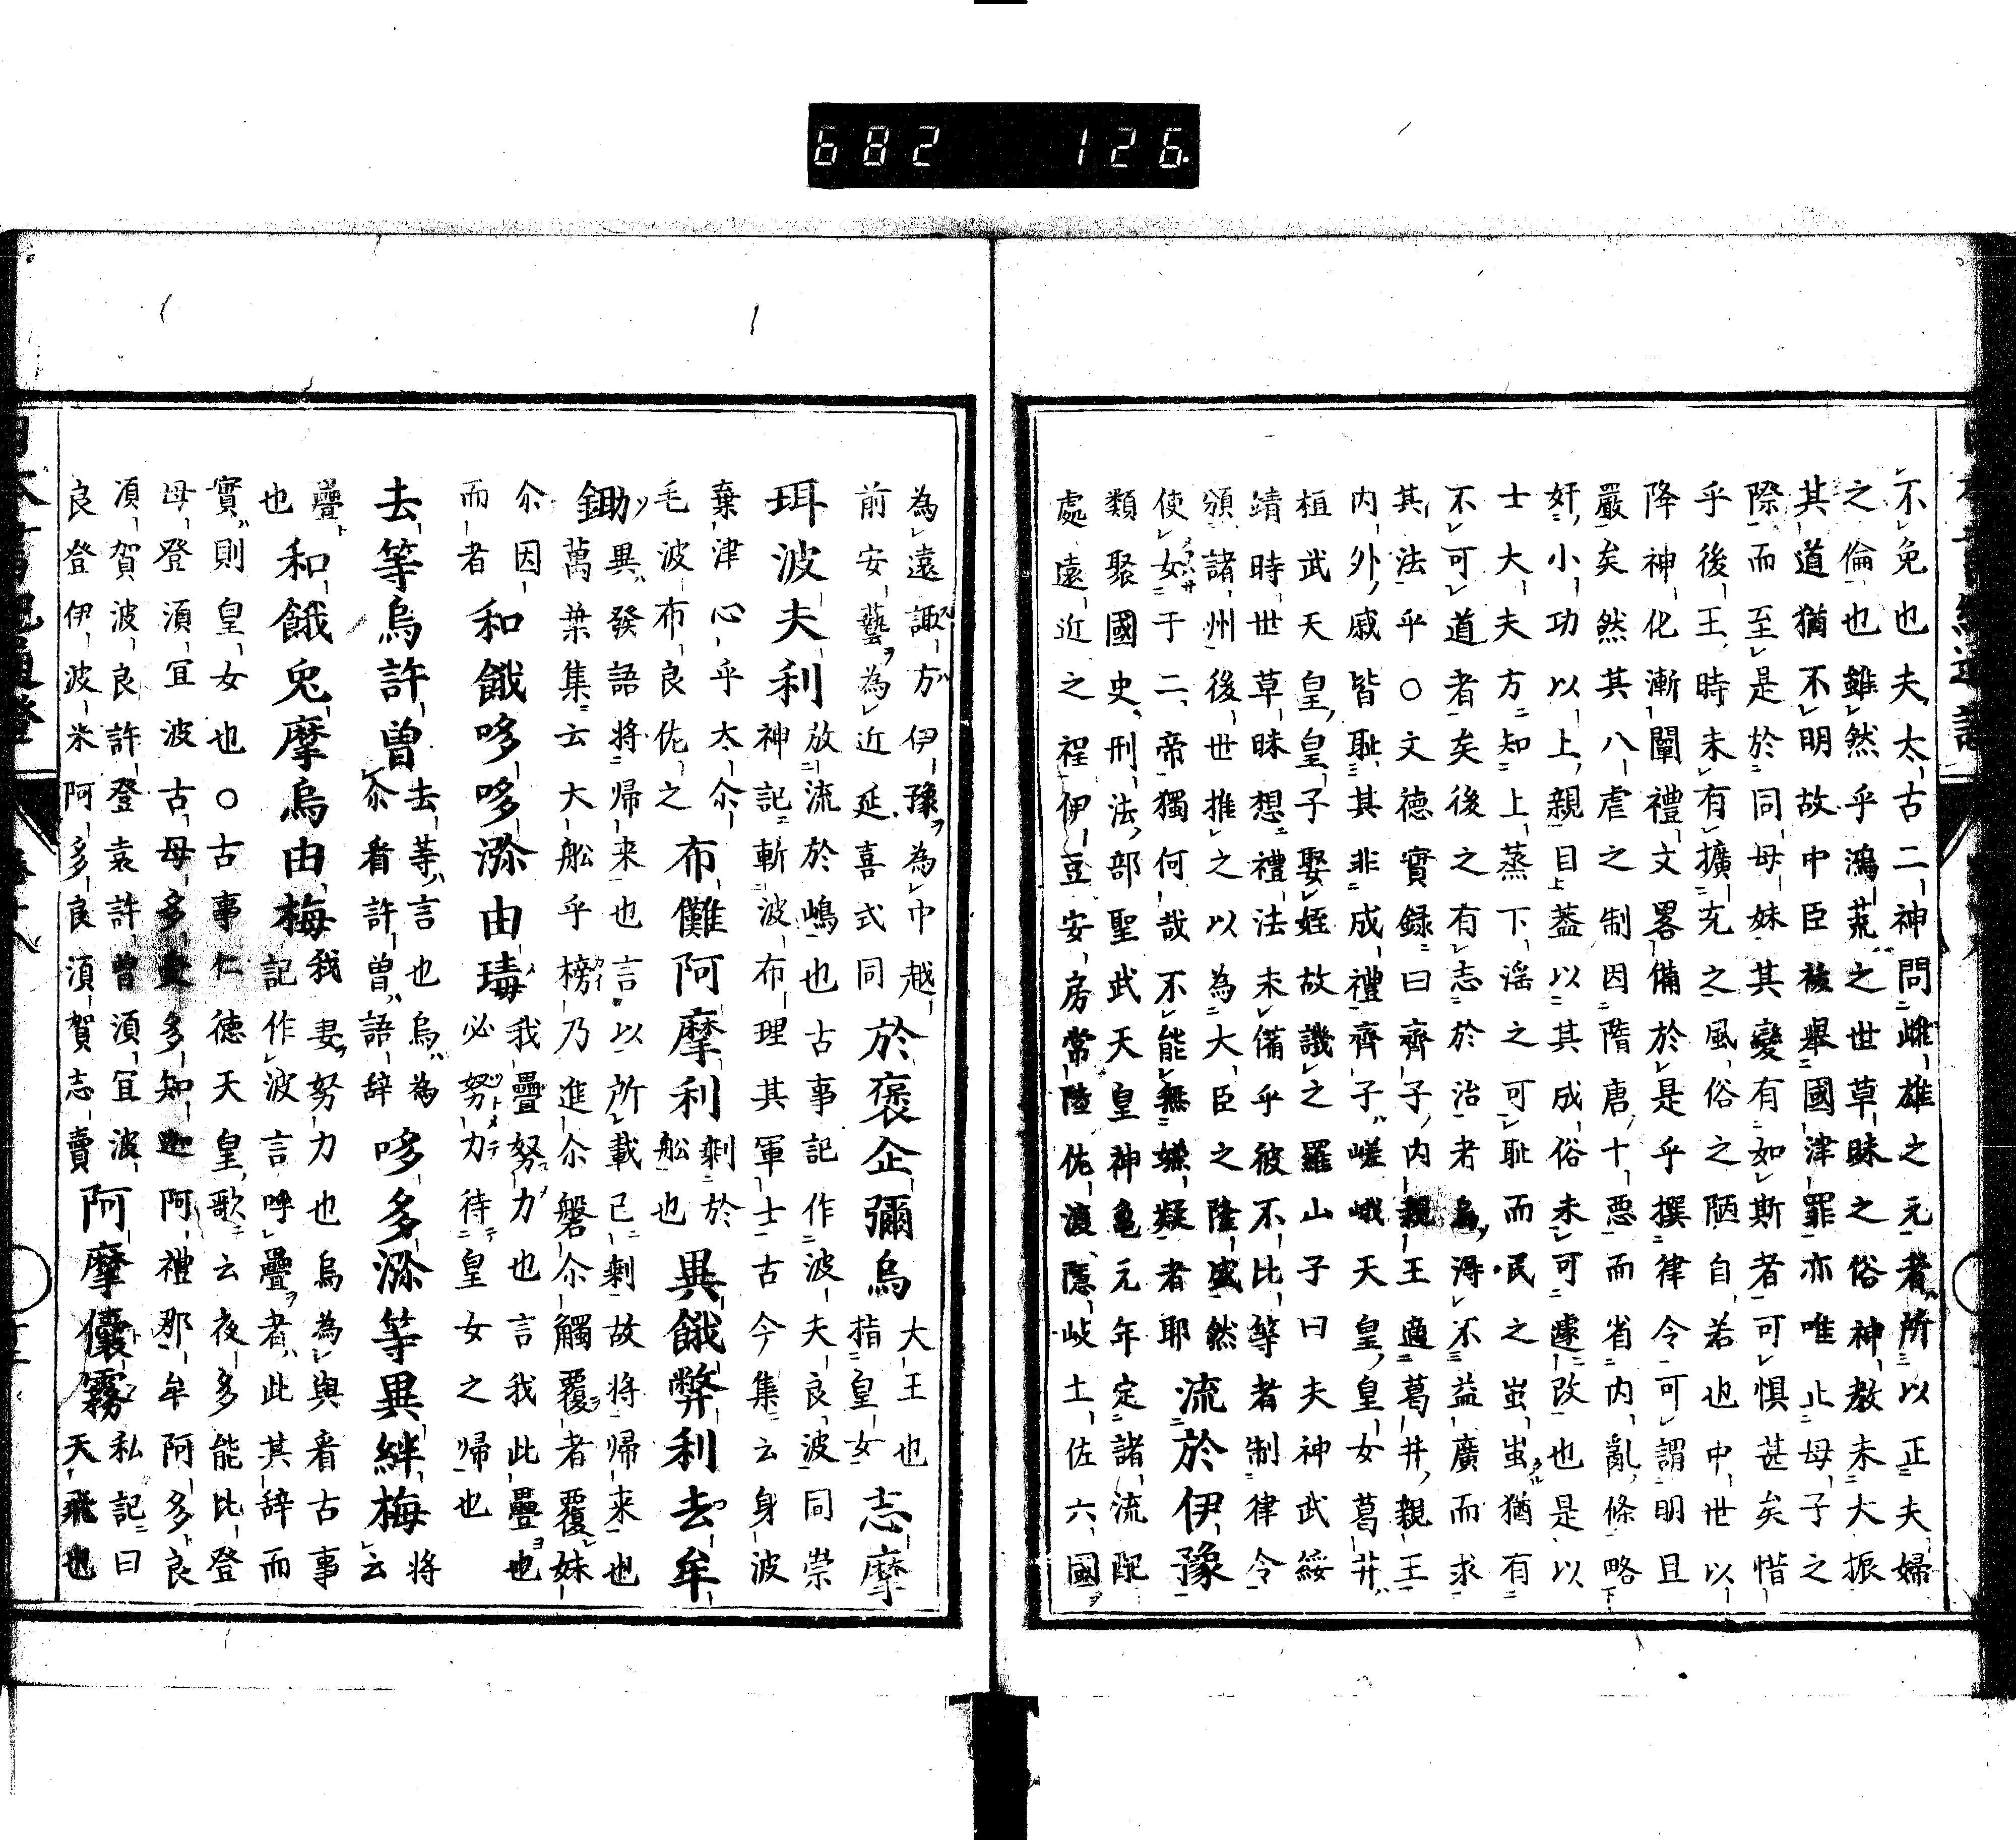 682 126
不免也夫太古二神問雌雄之元者所以正夫婦
之倫也雖然乎鴻荒之世草昧之俗神教未大振
其道猶不明故中臣祓舉國津罪亦唯止母子之
際而至是於同母妹其變有如斯者可惧甚矣惜
乎後王時未有擴充之風俗之陋自若也中世以
降神化漸闡禮文畧備於是乎撰律令可謂明且
嚴矣然其八虐之制因階唐十惡而省内亂條略
奸小功以上親目蓋以其成俗未可遽改也是以
士大夫方知上蒸下淫之可耻而民之蚩蚩猶有
不可道者矣後之有志於治者烏得不益廣而求
其法乎○文德實録曰齊子内親王適葛井親王
内外戚皆耻其非成禮齊子嵯峨天皇皇女葛井
桓武天皇皇子娶姪故譏之羅山子曰夫神武綏
靖時世草昧想禮法未備乎彼不比等者制律令
頒諸州後世推之以為大臣之隆盛然
使女于二帝獨何哉不能無嫌疑者耶 流於伊豫
類聚國史刑法部聖武天皇神龜元年定諸流配
處遠近之程伊豆安房常陸佐渡隱岐土佐六國
為遠諏方伊豫為中越
前安藝為近延喜式同 於褒企彌烏 大王也
指皇女 志摩
珥波夫利 放流於嶋也古事記作波夫良波同崇
神記斬波布理其軍士古今集云身波
棄津心乎太尒
毛波布良佐之 布儺阿摩利 剩於
船也 異餓弊利去牟
鋤 異發語將帰来也言以所載已剩故将帰来也
萬葉集云大舩乎榜乃進尒磐尒觸覆者覆妹
尒因
而者 和餓哆哆瀰由梅 我疊努力也言我此疊也
必努力待皇女之帰也
去等烏許曾 去等言也烏為
尒看許曾語辞 哆多瀰等異絆梅 将
云
疊
也 和餓兎摩烏由梅 我妻努力也烏為與看古事
記作波言呼疊者此其辞而
實則皇女也○古事仁徳天皇歌云夜多能比登
母登湏冝波古母多受多知迦阿禮那牟阿多良
湏賀波良許登袁許曾湏冝波 阿摩儾霧 私記曰
良登伊波米阿多良湏賀志賣 天飛也